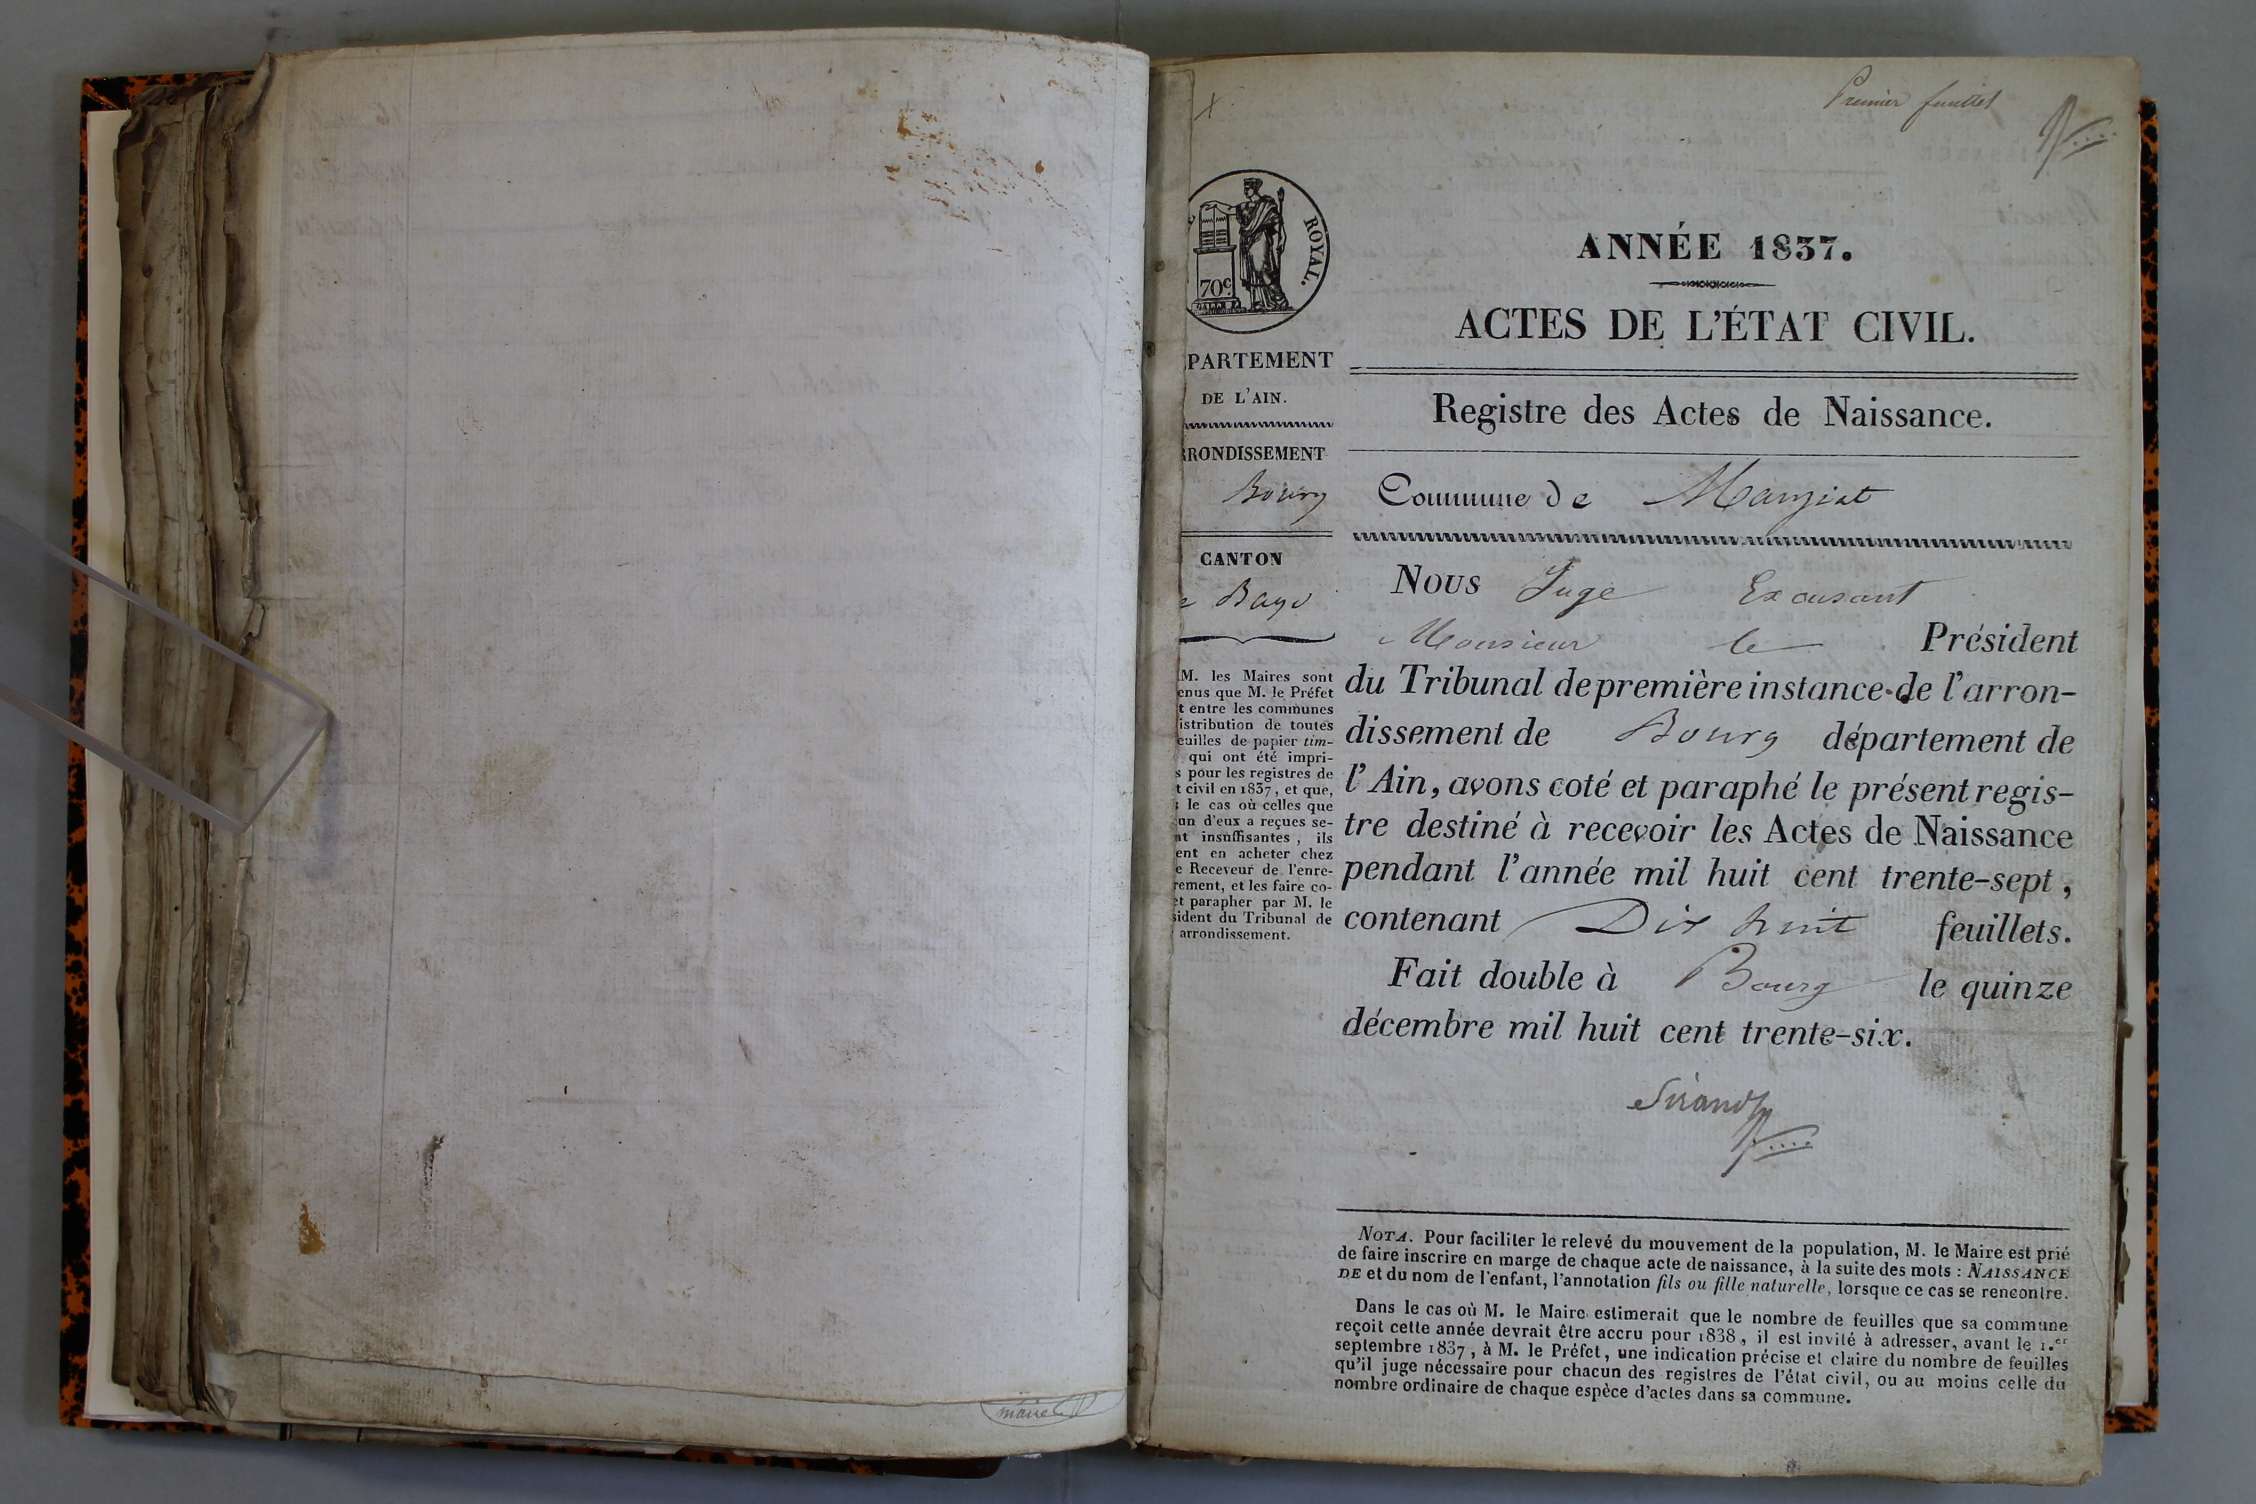 Premier feuillet
ROYAL.
70c
ANNÉE 1837.
ACTES DE L'ÉTAT CIVIL.
PARTEMENT
DE L'AIN.
Registre des Actes de Naissance.
RRONDISSEMENT
Bourg
Commune de Manziat
CANTON
Bagé
Nous Juge Excusant
Monsieur le Président
du Tribunal de première instance de l'arron-
dissement de Bourg département de
l'Ain, avons coté et paraphé le présent regis-
tre destiné à recevoir les Actes de Naissance
pendant l'année mil huit cent trente-sept,
contenant Dix huit feuillets.
Fait double à Bourg le quinze
décembre mil huit cent trente-six.
M. les Maires sont
enus que M. le Préfet
t entre les communes
istribution de toutes
euilles de papier tim-
qui ont été impri-
s pour les registres de
t civil en 1837, et que,
le cas où celles que
un d'eux a reçues se-
nt insuffisantes, ils
ent en acheter chez
e Receveur de l'enre-
rement, et les faire co-
et parapher par M. le
sident du Tribunal de
arrondissement.
Sirand
NOTA. Pour faciliter le relevé du mouvement de la population, M. le Maire est prié
de faire inscrire en marge de chaque acte de naissance, à la suite des mots : NAISSANCE
DE et du nom de l'enfant, l'annotation fils ou fille naturelle, lorsque ce cas se rencontre.
Dans le cas où M. le Maire estimerait que le nombre de feuilles que sa commune
reçoit cette année devrait être accru pour 1838, il est invité à adresser, avant le 1.er
septembre 1837, à M. le Préfet, une indication précise et claire du nombre de feuilles
qu'il juge nécessaire pour chacun des registres de l'état civil, ou au moins celle du
nombre ordinaire de chaque espèce d'actes dans sa commune.